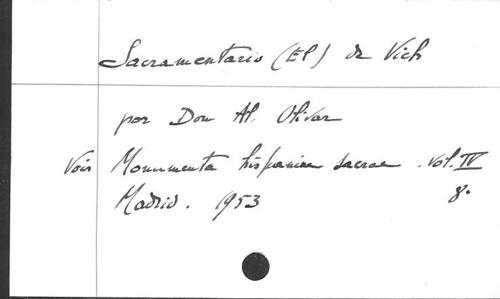 Sacramentario (El) de Vich
por Dom Al. Olivar
Voir Monumenta hispaniae sacrae. Vol. IV
Madrid. 1953 8°